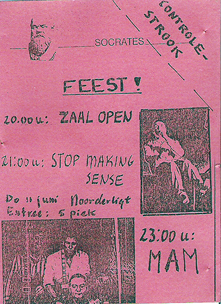 CONTROLE-
STROOK
SOCRATES
FEEST!
20.00 u: ZAAL OPEN
21:00 u: STOP MAKING
SENSE
Do 11 juni Noorderligt
Entree: 5 piek
23:00 u:
MAM